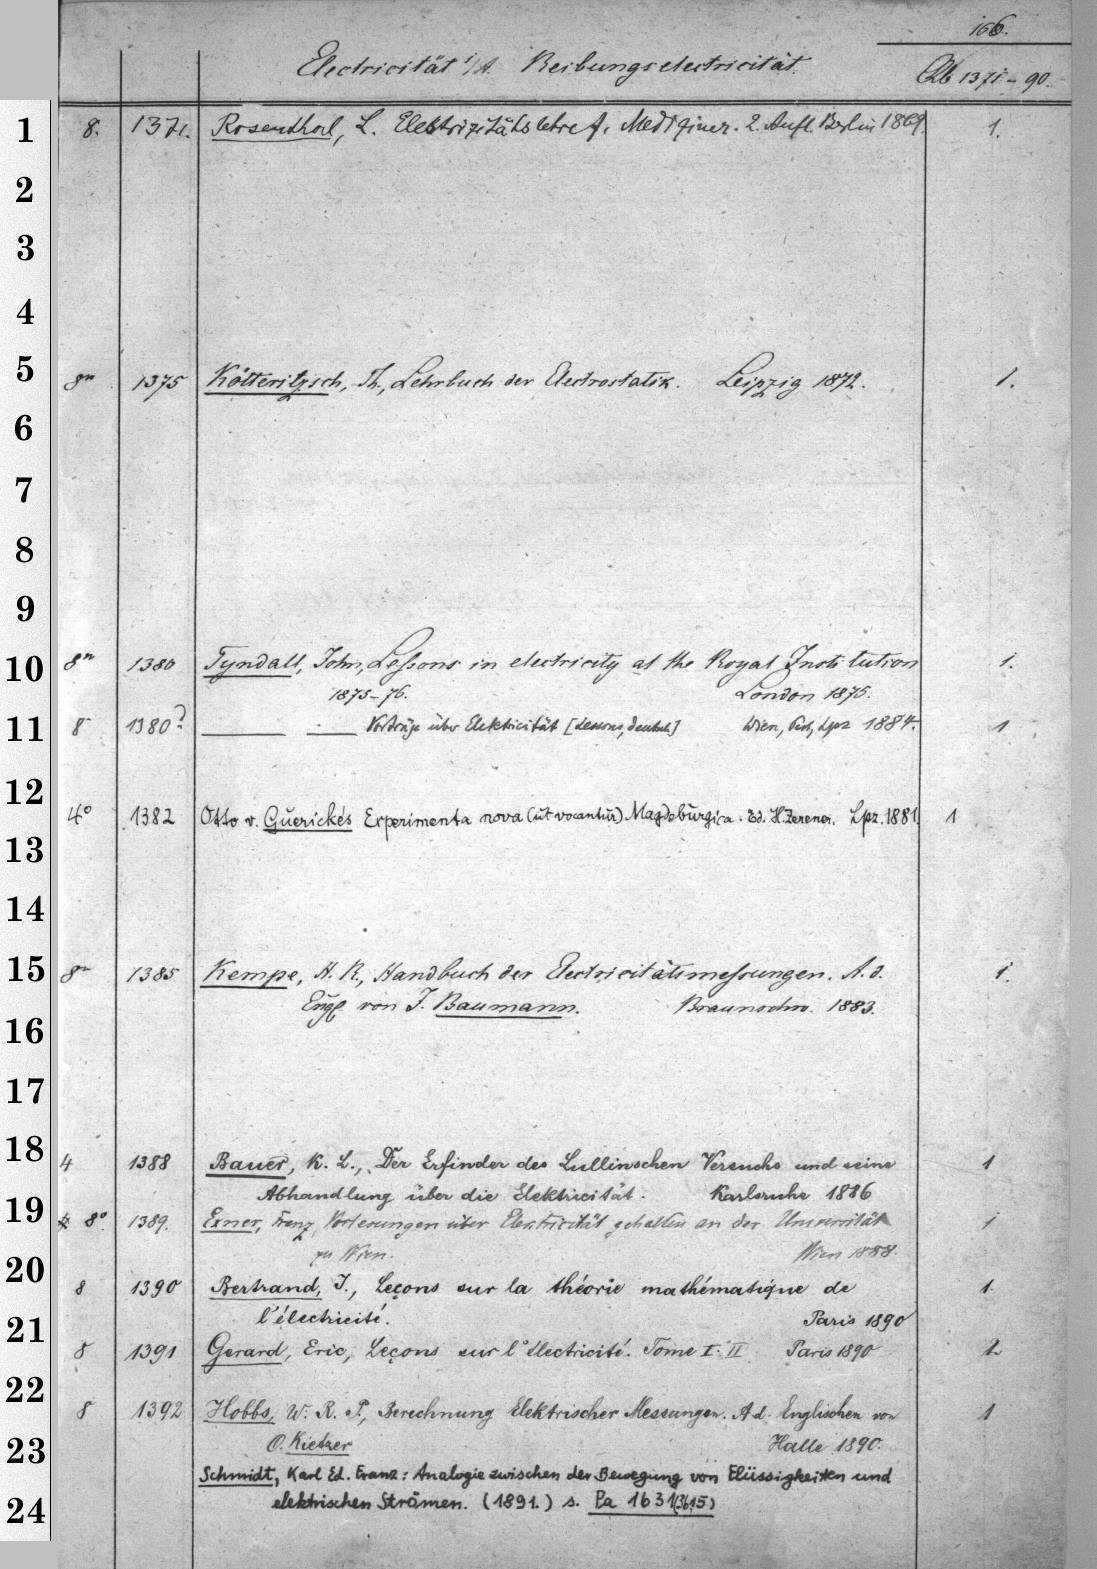 166.
Electricität i/A. Reibungselectricität.
Qb 1371-90.
1 8. 1371. Rosenthal, L. Elektrizitätslehre f. Mediziner. 2. Aufl. Berlin 1869. 1.
2
3
4
5 8° 1375 Kötteritzsch, Th., Lehrbuch der Electrostatik. Leipzig 1872. 1.
6
7
8
9
10 8° 1380 Tyndall, John, Lessons in electricity at the Royal Institution 1.
1875-76. London 1875.
11 8 1380? Vorträge über Elektricität [Lessons, deutsch] Wien, Pest, Lpz 1884. 1
12
4° 1382 Otto v. Guericke's Experimenta nova (ut vocantur) Magdeburgica. Ed. H. Zerener. Lpz. 1881. 1
13
14
15 8° 1385 Kempe, H. R., Handbuch der Electricitätsmessungen. A. d. 1.
Engl von J. Baumann. Braunschw. 1883.
16
17
18 4 1388 Bauer, K. L., Der Erfinder des Lullinschen Versuchs und seine 1
Abhandlung über die Elektricität. Karlsruhe 1886
19 8° 1389. Exner, Franz, Vorlesungen über Electricität gehalten an der Universität 1
zu Wien. Wien 1888.
20 8 1390 Bertrand, J., Leçons sur la théorie mathématique de 1.
l'électricité. Paris 1890
21 8 1391 Gerard, Eric, Leçons sur l'électricité. Tome I. II Paris 1890 2
22 8 1392 Hobbs, W. R. P., Berechnung Elektrischer Messungen. A d. Englischen von 1
23 O. Kietzer Halle 1890.
Schmidt, Karl Ed. Franz: Analogie zwischen der Bewegung von Flüssigkeiten und
24 elektrischen Strömen. (1891.) s. Pa 1631(36,15)